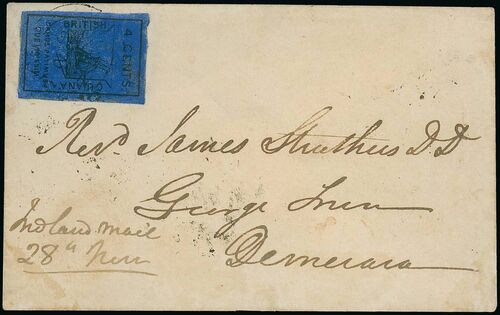 BRITISH
GUIANA.
4 CENTS
Revd James Struthers D D
George Town
Demerara
Inland mail
28th